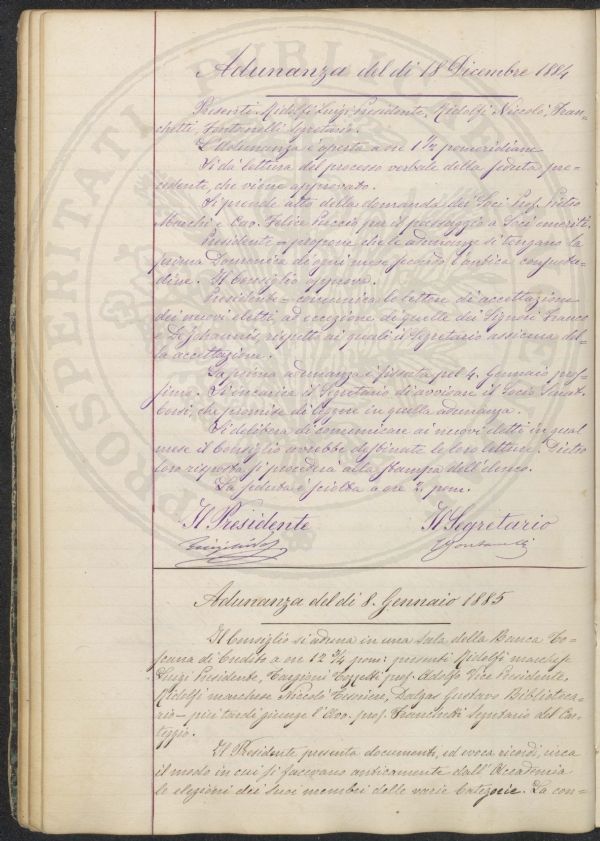 Adunanza del dì 18 Dicembre 1884
Presenti. Ridolfi Luigi Presidente, Ridolfi Niccolò, Fran=
chetti, Fontanelli Segretario.
L'Adunanza è aperta a ore 1 1/2 pomeridiane
Si dà lettura del processo verbale della seduta pre=
cedente, che viene approvato.
Si prende atto della domanda dei Soci Prof. Pietro
Marchi e Cav. Felice Puccio per il passaggio a Soci emeriti.
Presidente = propone che le adunanze si tengano la
prima Domenica di ogni mese secondo l'antica consuetu=
dine. Il Consiglio approva.
Presidente = comunica le lettere di accettazione
dei nuovi eletti ad eccezione di quelle dei Signori Franco
e De Johannis, rispetto ai quali il Segretario assicura del=
la accettazione.
La prima adunanza è fissata pel 4. Gennaio pros=
simo. Si incarica il Segretario di avvisare il Socio Senat.
Corsi, che promise di legere in quella adunanza.
Si delibera di comunicare ai nuovi eletti in qual
mese il Consiglio avrebbe destinate le loro letture. Dietro
loro risposta si procederà alla stampa dell'elenco.
La seduta è sciolta a ore 3. pom.
Il Presidente Il Segretario
Adunanza del dì 8. Gennaio 1885
Il Consiglio si aduna in una Sala della Banca To=
scana di Credito a ore 12 3/4 pom: presenti Ridolfi marchese
Luigi Presidente, Targioni Tozzetti prof. Adolfo Vice Presidente,
Ridolfi marchese Niccolò Tesoriere, Dalgas Gustavo Biblioteca=
rio = più tardi giunge l'Avv. prof. Franchetti Segretario del Car=
teggio.
Il Presidente presenta documenti, ed evoca ricordi, circa
il modo in cui si facevano anticamente dall'Accademia
le elezioni dei suoi membri delle varie Categorie. La con=
PROSPERITATI PUBLICAE